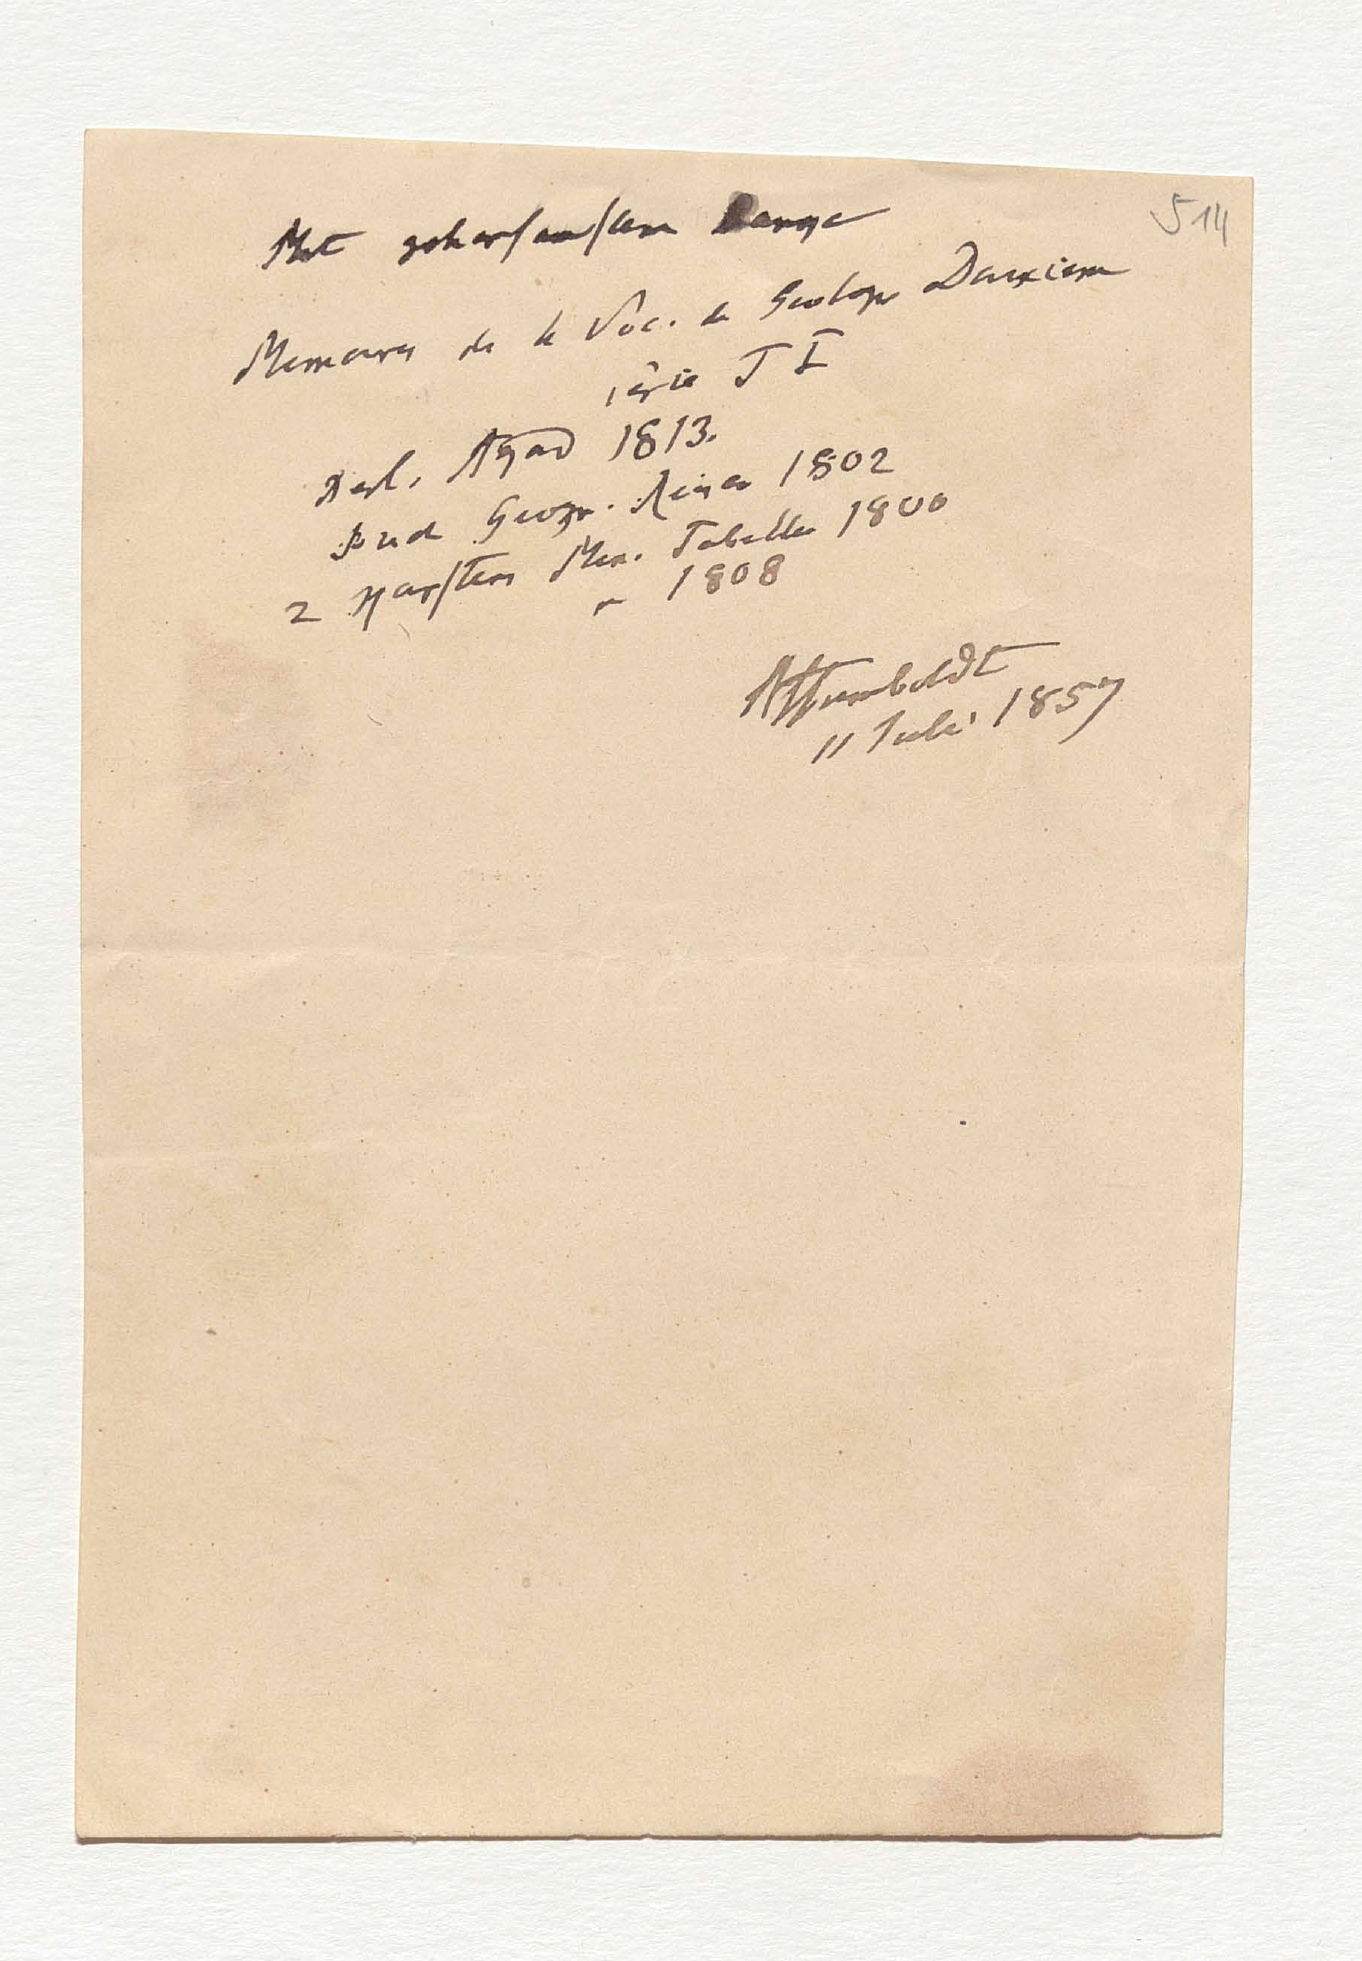 514
Mit gehorsamstem Danke
Memoires de la Soc. de Geologie Deuxieme
série T I
Berl. Akad 1813.
Buch Geogn. Reisen 1802
2 Karstens Min. Tabellen 1800
– 1808
AHumboldt
11 Juli 1857